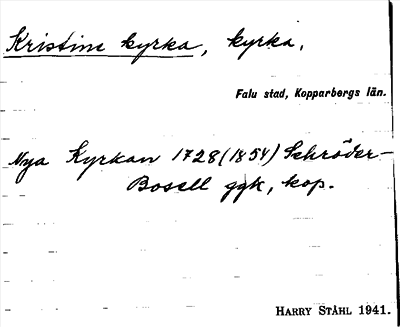 Kristine kyrka, kyrka,
Falu stad, Kopparbergs län.
Nya Kyrkan 1728 (1854) Schröder-
Bosell ggk, kop.
HARRY STÅHL 1941.